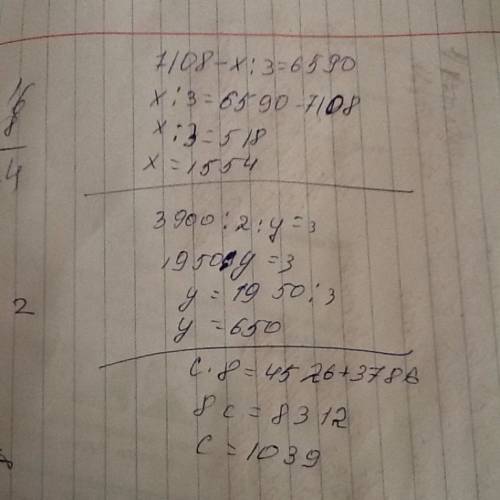 16
8
4
2
8
7108-x:3=6590
x:3=6590-7108
x:3=518
x=1554
3900:2:y=3
1950:y=3
y=1950:3
y=650
c·8=4526+3786
8c=8312
c=1039